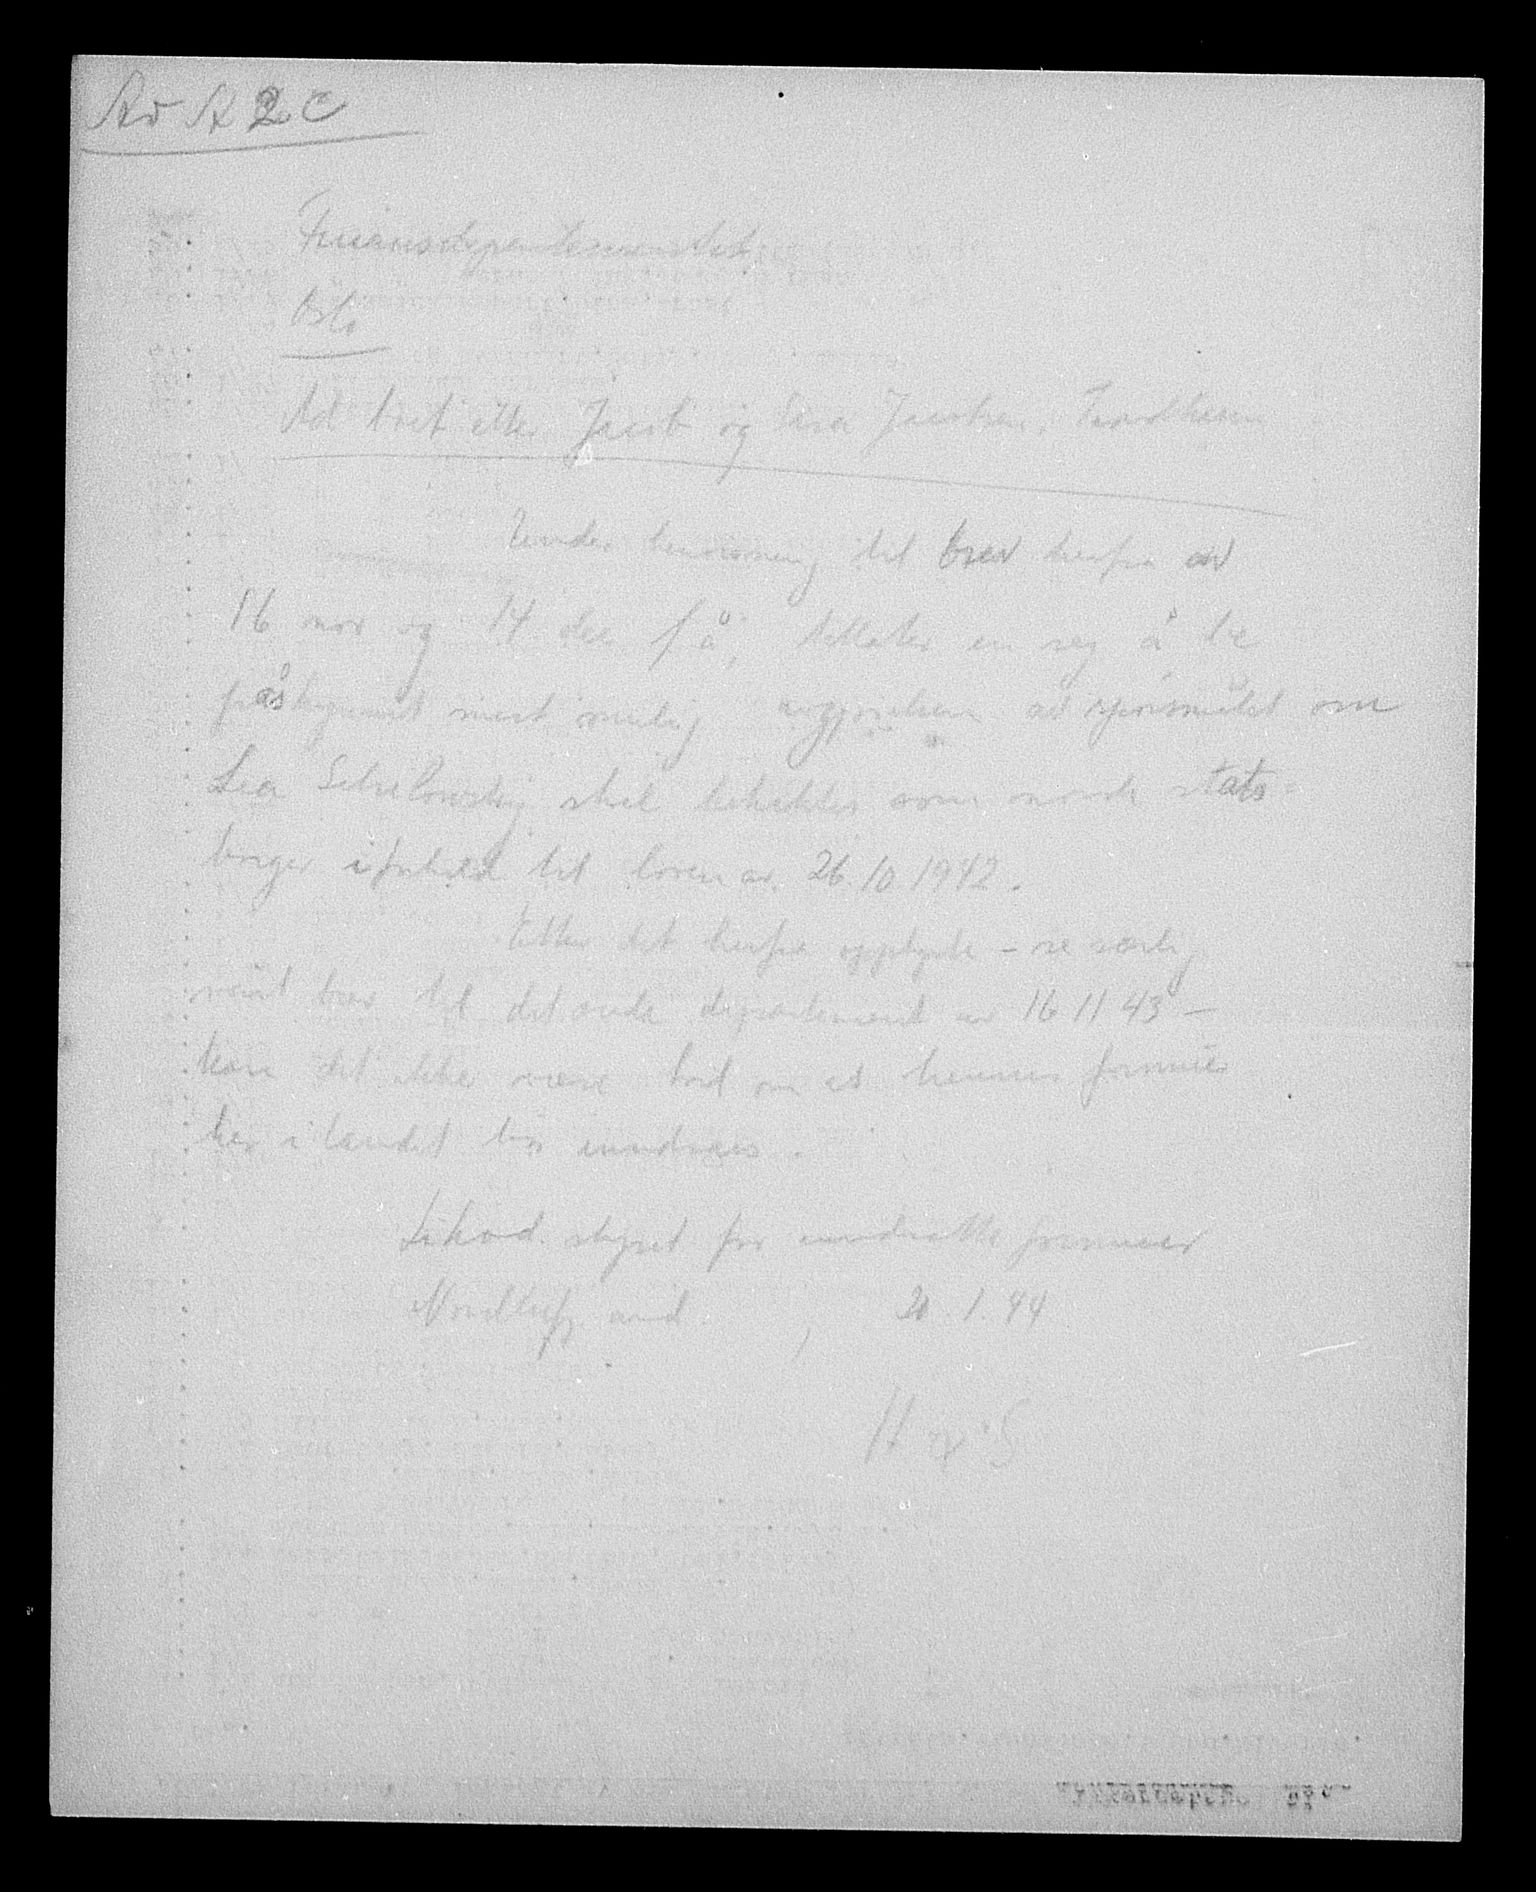 Av A 2 C
Finansdepartementet
Oslo
Ad boet etter Jacob og Lea Jacobsen, Trondheim
Under henvisning til brev herfra av
16 nov og 14 des f å, tillater en seg å be
påskyndt mest mulig avgjørelsen av spørsmålet om
Lea skal betraktes som norsk stats-
borger i forhold til loven av 26.10.1942.
Etter det herfra opplyste - se særlig
vårt brev til det ærede departement av 16 11 43 -
kan det ikke være tvil om at hennes formue
her i landet bør inndrages.
Likvid. styret for inndratte formuer
avd. , 20.1.44
H S